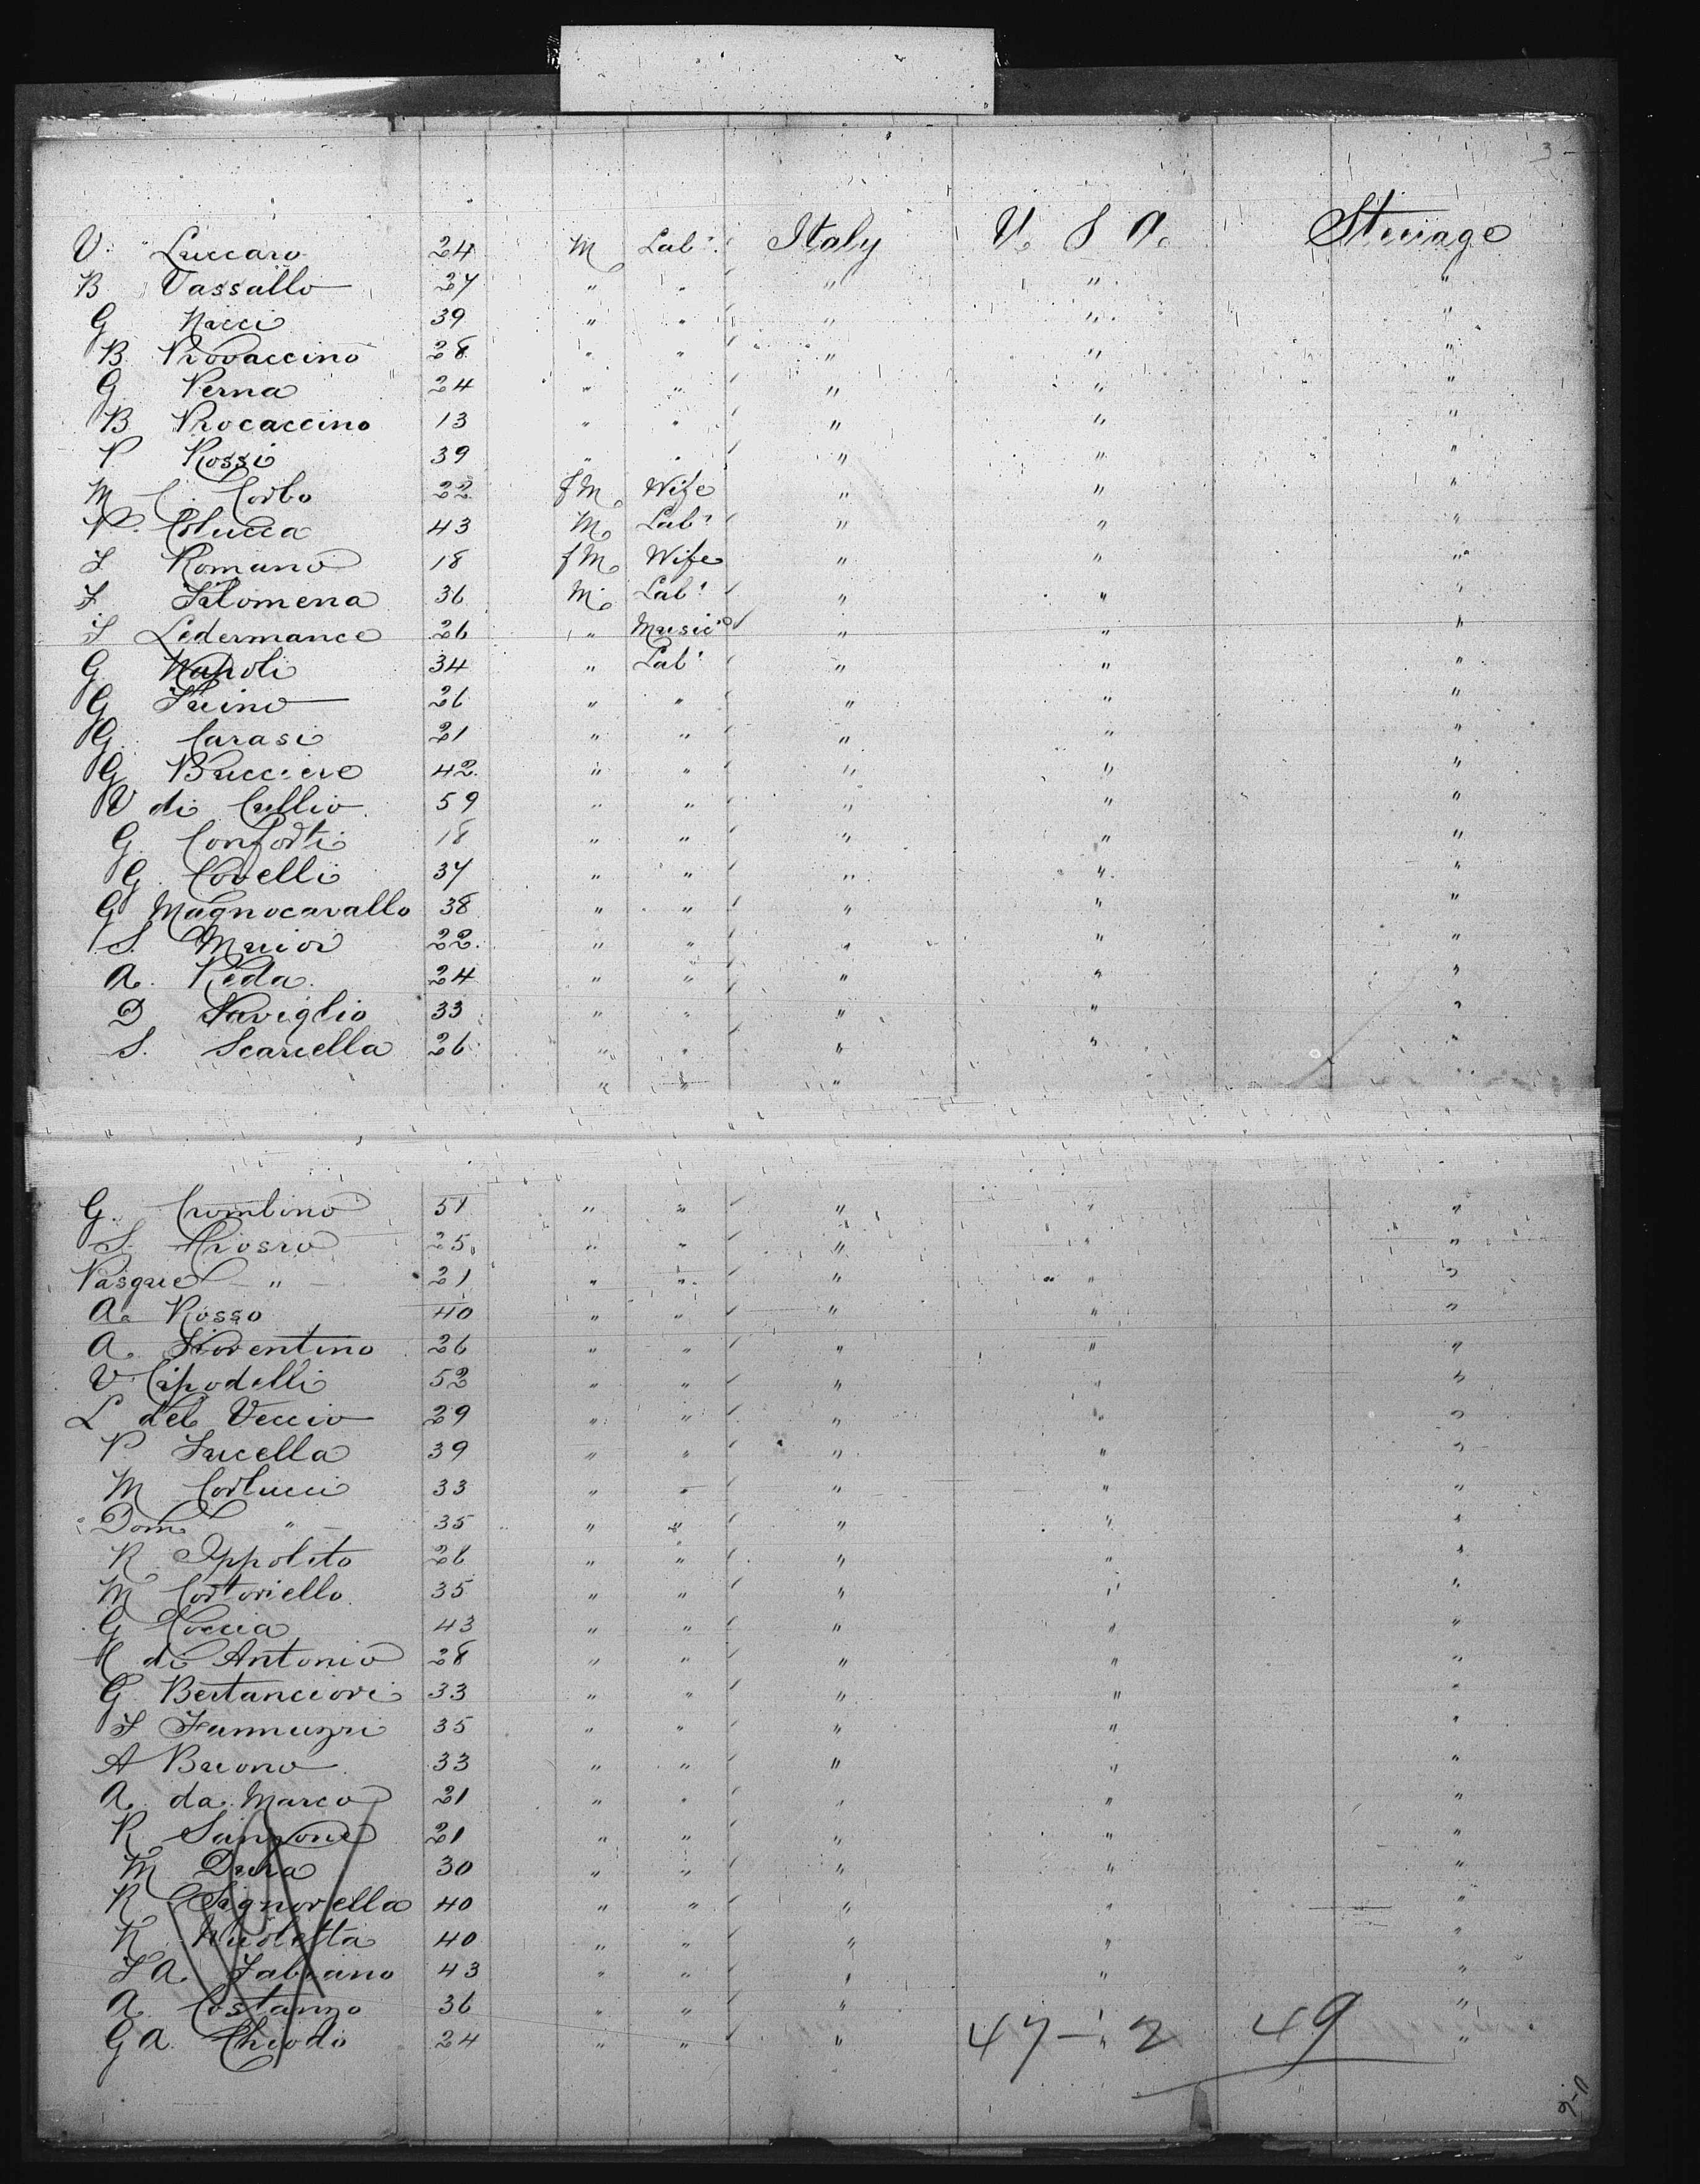 3
V. Luccaro 24 M Labr. Italy U. S A. Steerage
B Vassallo 27 " " " " "
G Nacci 39 " " " " "
B. Provaccino 28 " " " " "
G Perna 24 " " " " "
B Procaccino 13 " " " " "
P. Rossi 39 " " " " "
M C. Corbo 22 fM Wife " " "
P. Colucca 43 M Labr " " "
F Romano 18 fM Wife " " "
F. Filomena 36 M Labr " " "
F Ledermance 26 " Music " " "
G Napoli 34 " Labr " " "
G Fuino 26 " " " " "
G. Carasi 21 " " " " "
G Bucciere 42 " " " " "
V di Cullio 59 " " " " "
G. Conforti 18 " " " " "
G. Covelli 37 " " " " "
G Magnocavallo 38 " " " " "
S. Muior 22 " " " " "
A. Reda 24 " " " " "
D Naviglio 33 " " " " "
S. Scarcella 26 " " " " "
" " "
G. Crombino 51 " " " " "
S. Chiosro 25 " " " " "
Pasque " 21 " " " " "
A. Rosso 40 " " " " "
A. Fiorentino 26 " " " " "
V. Capodelli 52 " " " " "
L del Veccio 29 " " " " "
P. Fucella 39 " " " " "
M Corlucci 33 " " " " "
Dom. " 35 " " " " "
R Ippolito 28 " " " " "
M Cortoriello 35 " " " " "
G Coccia 43 " " " " "
C di Antonio 28 " " " " "
G. Bertanciori 33 " " " " "
F Iannuzri 35 " " " " "
A Buono 33 " " " " "
A. da Marco 21 " " " " "
R Sanzone 21 " " " " "
M Dura 30 " " " " "
R Signorella 40 " " " " "
N Nicoletta 40 " " " " "
F A Fabiano 43 " " " " "
A. Costanzo 36 " " " "
G A. Chiodo 24 " " " "
47 - 2 49